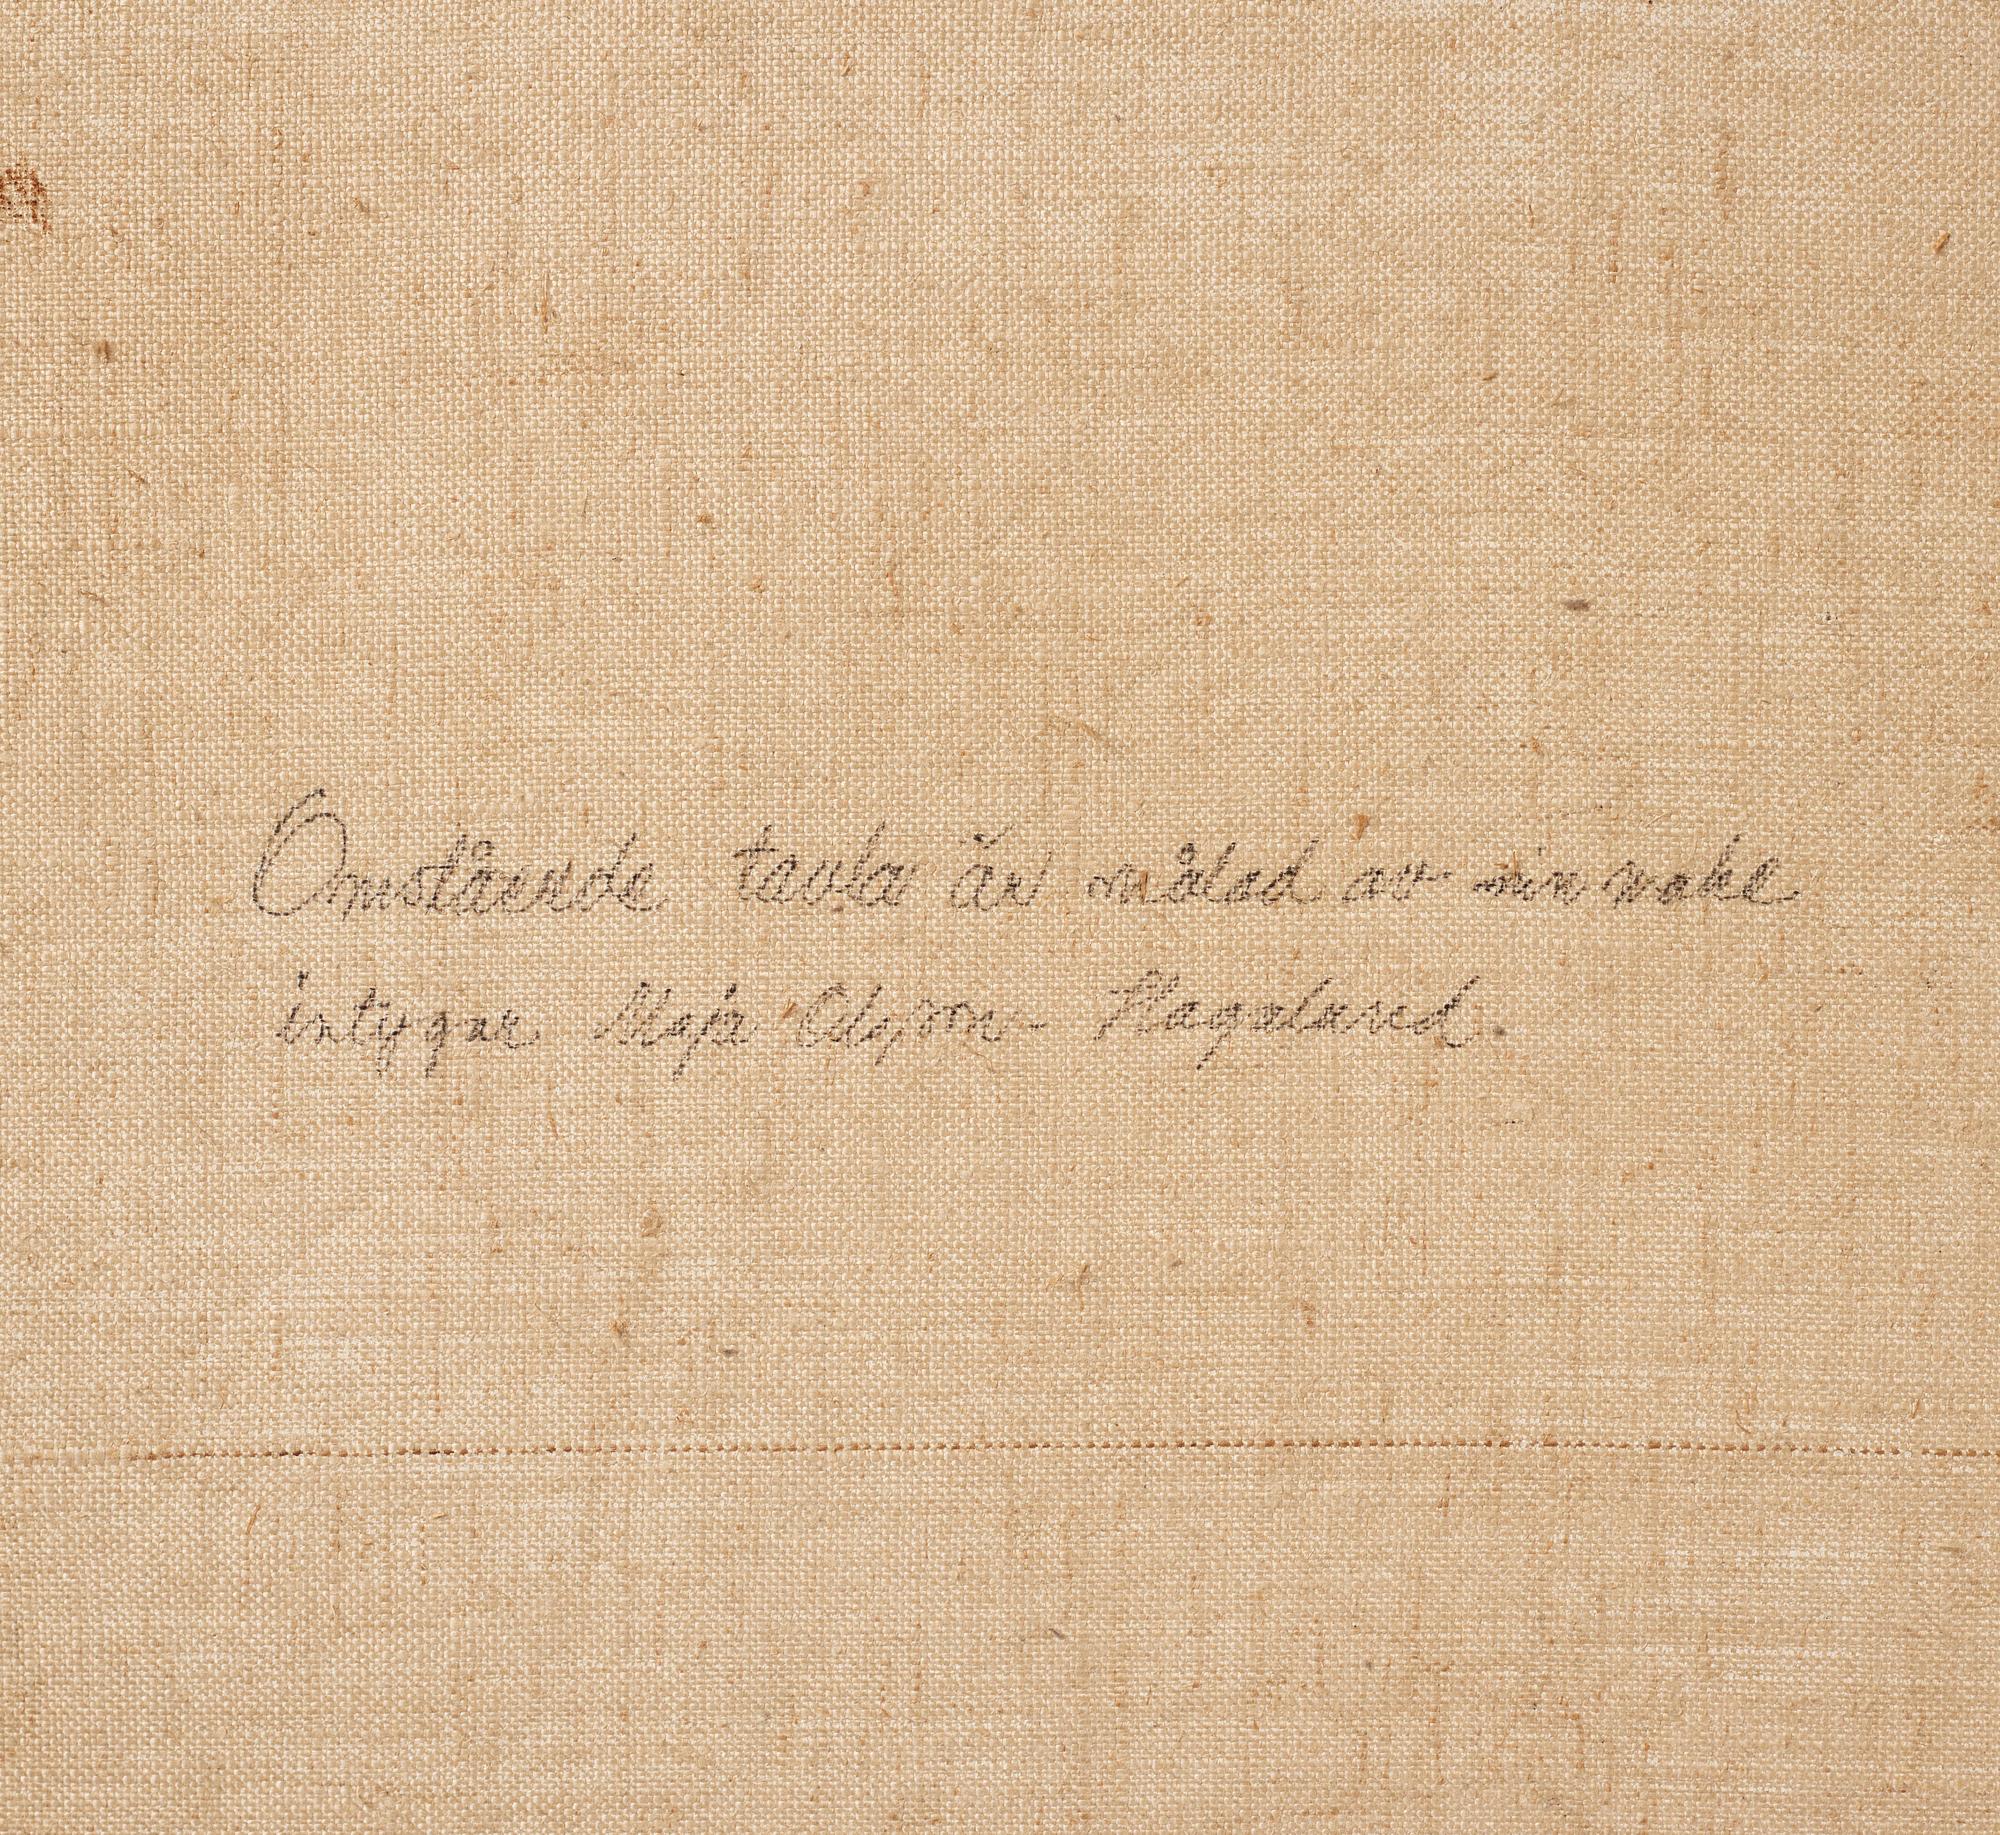 Omstående tavla är målad av min make
intygar Maja Olsson-Hagaland.